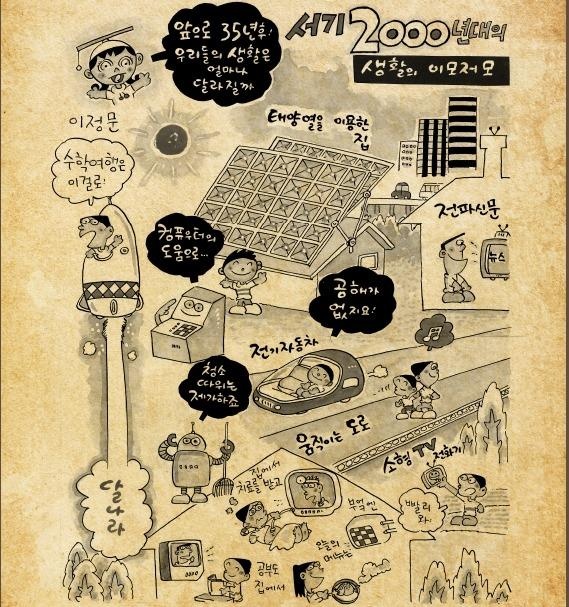 앞으로 35년후!
우리들의 생활은
얼마나
달라질까
서기 2000년대의
생활의 이모저모
이정문
수학여행은
이걸로!
태양열을 이용한
집
전파신문
뉴스
컴퓨우터의
도움으로...
공해가
없지요!
전기자동차
청소
따위는
제가하죠
움직이는 도로
소형 TV
전화기
빨리
와!
달나라
집에서
치료를 받고
부엌엔
오늘의
메뉴는
공부도
집에서